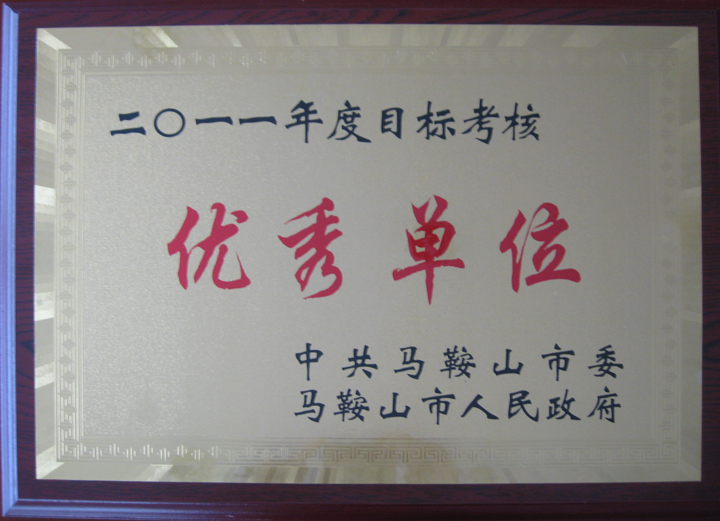 二〇一一年度目标考核
优秀单位
中共马鞍山市委
马鞍山市人民政府